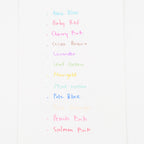 Aqua Blue
Baby Red
Cherry Pink
Cocoa Brown
Lavender
Leaf Green
Marigold
Mint Green
Pale Blue
Peach Pink
Salmon Pink